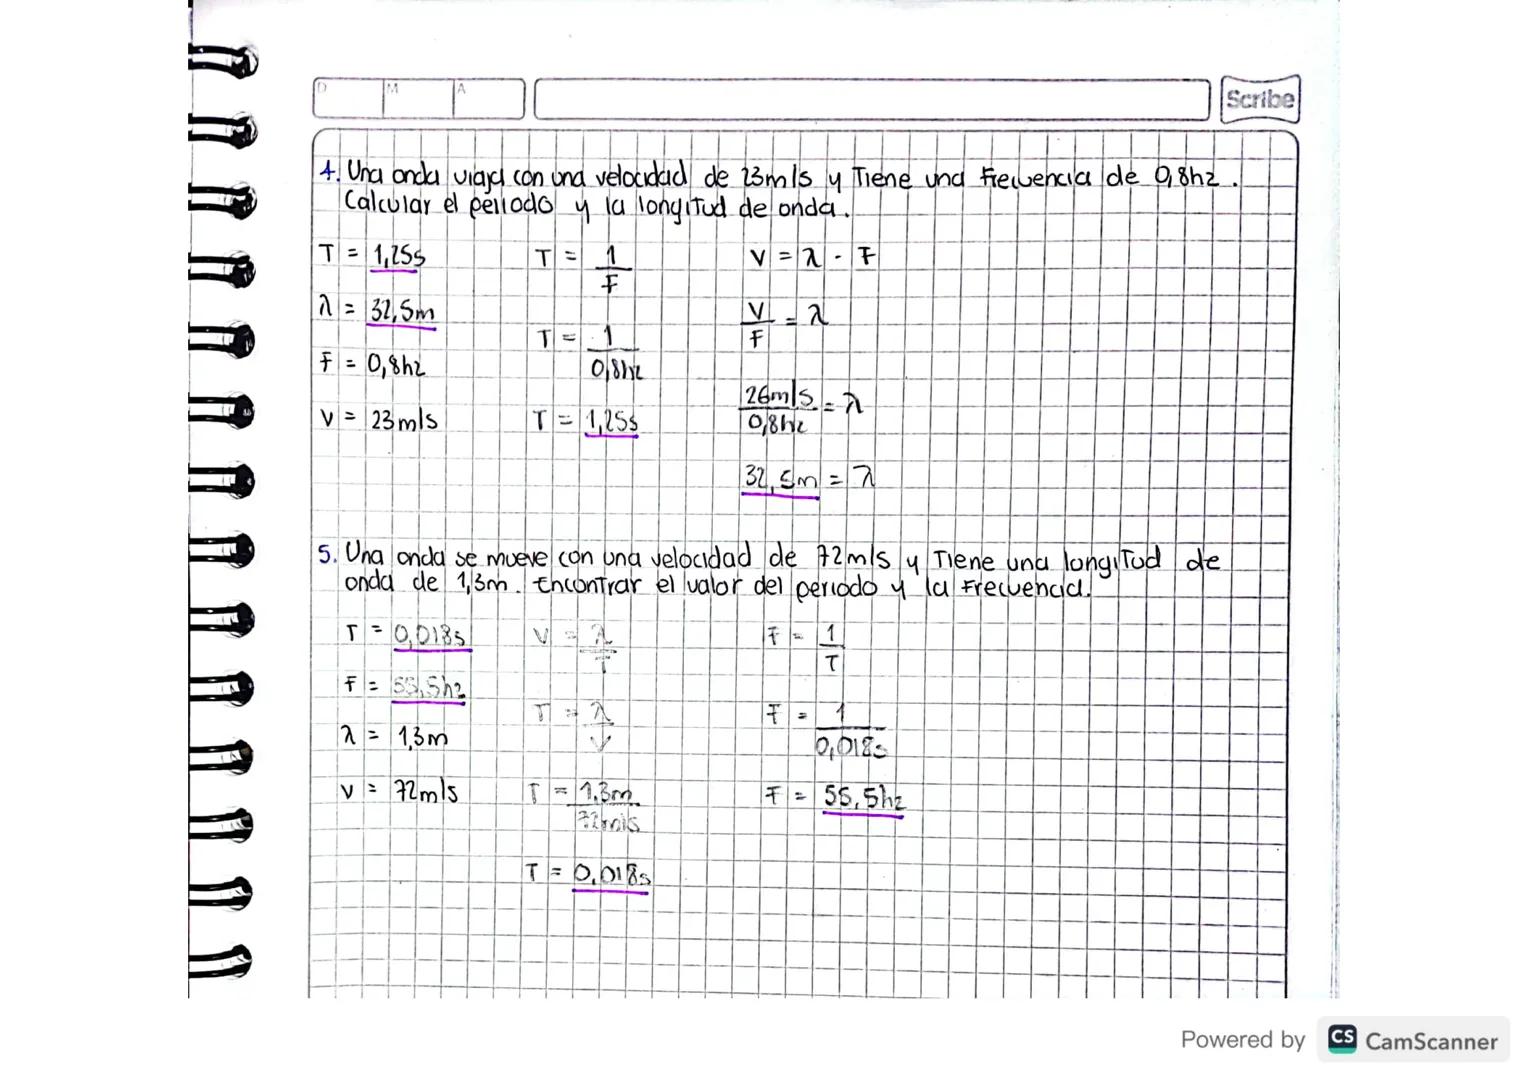 D M A
Scribe
4. Una onda viaja con una velocidad de 23m/s y Tiene una Frecuencia de 0,8hz.
Calcular el periodo y la longitud de onda.
T = 1,25s T = 1/F V = λ · F
λ = 32,5m V/F = λ
F = 0,8hz T = 1/0,8hz
V = 23m/s T = 1,25s 26m/s/0,8hz = λ
32,5m = λ
5. Una onda se mueve con una velocidad de 72m/s y Tiene una longitud de
onda de 1,3m. Encontrar el valor del periodo y la Frecuencia.
T = 0,018s V = λ/T F = 1/T
F = 55,5hz T = λ/V F = 1/0,018s
λ = 1,3m
V = 72m/s T = 1,3m/72m/s F = 55,5hz
T = 0,018s
Powered by CS CamScanner